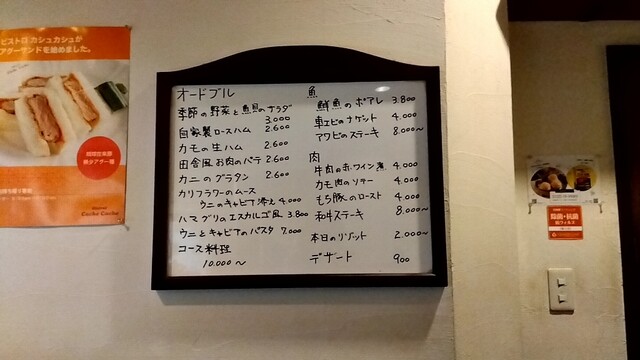 ビストロ カシュカシュが
アグーサンドを始めました。
Cache Cache
オードブル
季節の野菜と魚貝のサラダ
3.000
自家製ロースハム 2.600
カモの生ハム 2.600
田舎風お肉のパテ 2.600
カニのグラタン 2.600
カリフラワーのムース
ウニのキャビア添え 4.000
ハマグリのエスカルゴ風 3.800
ウニとキャビアのパスタ 7.000
コース料理
10.000〜
魚
鮮魚のポアレ 3.800
車エビのナゲット 4.000
アワビのステーキ 8.000〜
肉
牛肉の赤ワイン煮 4.000
カモ肉のソテー 4.000
もち豚のロースト 4.000
和牛ステーキ 8.000〜
本日のリゾット 2.000〜
デザート 900
除菌・抗菌